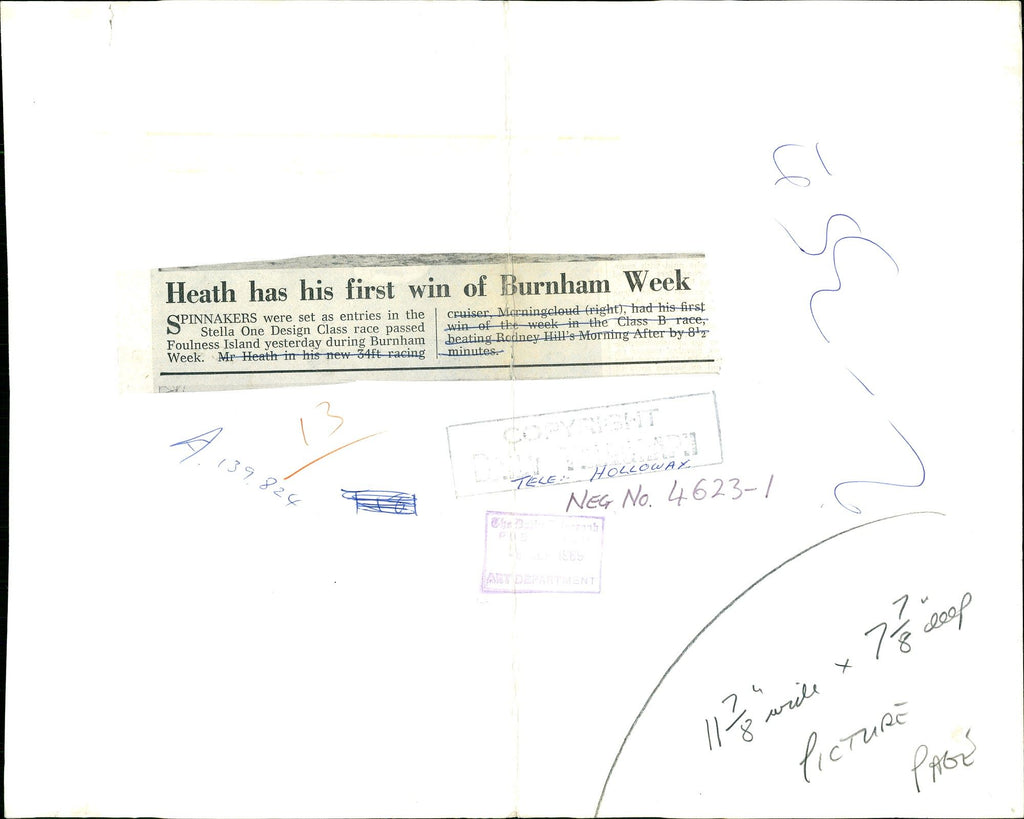 Heath has his first win of Burnham Week
SPINNAKERS were set as entries in the
Stella One Design Class race passed
Foulness Island yesterday during Burnham
Week. Mr Heath in his new 34ft racing
cruiser, Morningcloud (right), had his first
win of the week in the Class B race,
beating Rodney Hill's Morning After by 8½
minutes.
13
A. 139.824
COPYRIGHT
DAILY TELEGRAPH
TELE: HOLLOWAY
NEG No. 4623-1
The Daily Telegraph
1969
ART DEPARTMENT
11 7/8" wide x 7 7/8" deep
PICTURE
PAGE